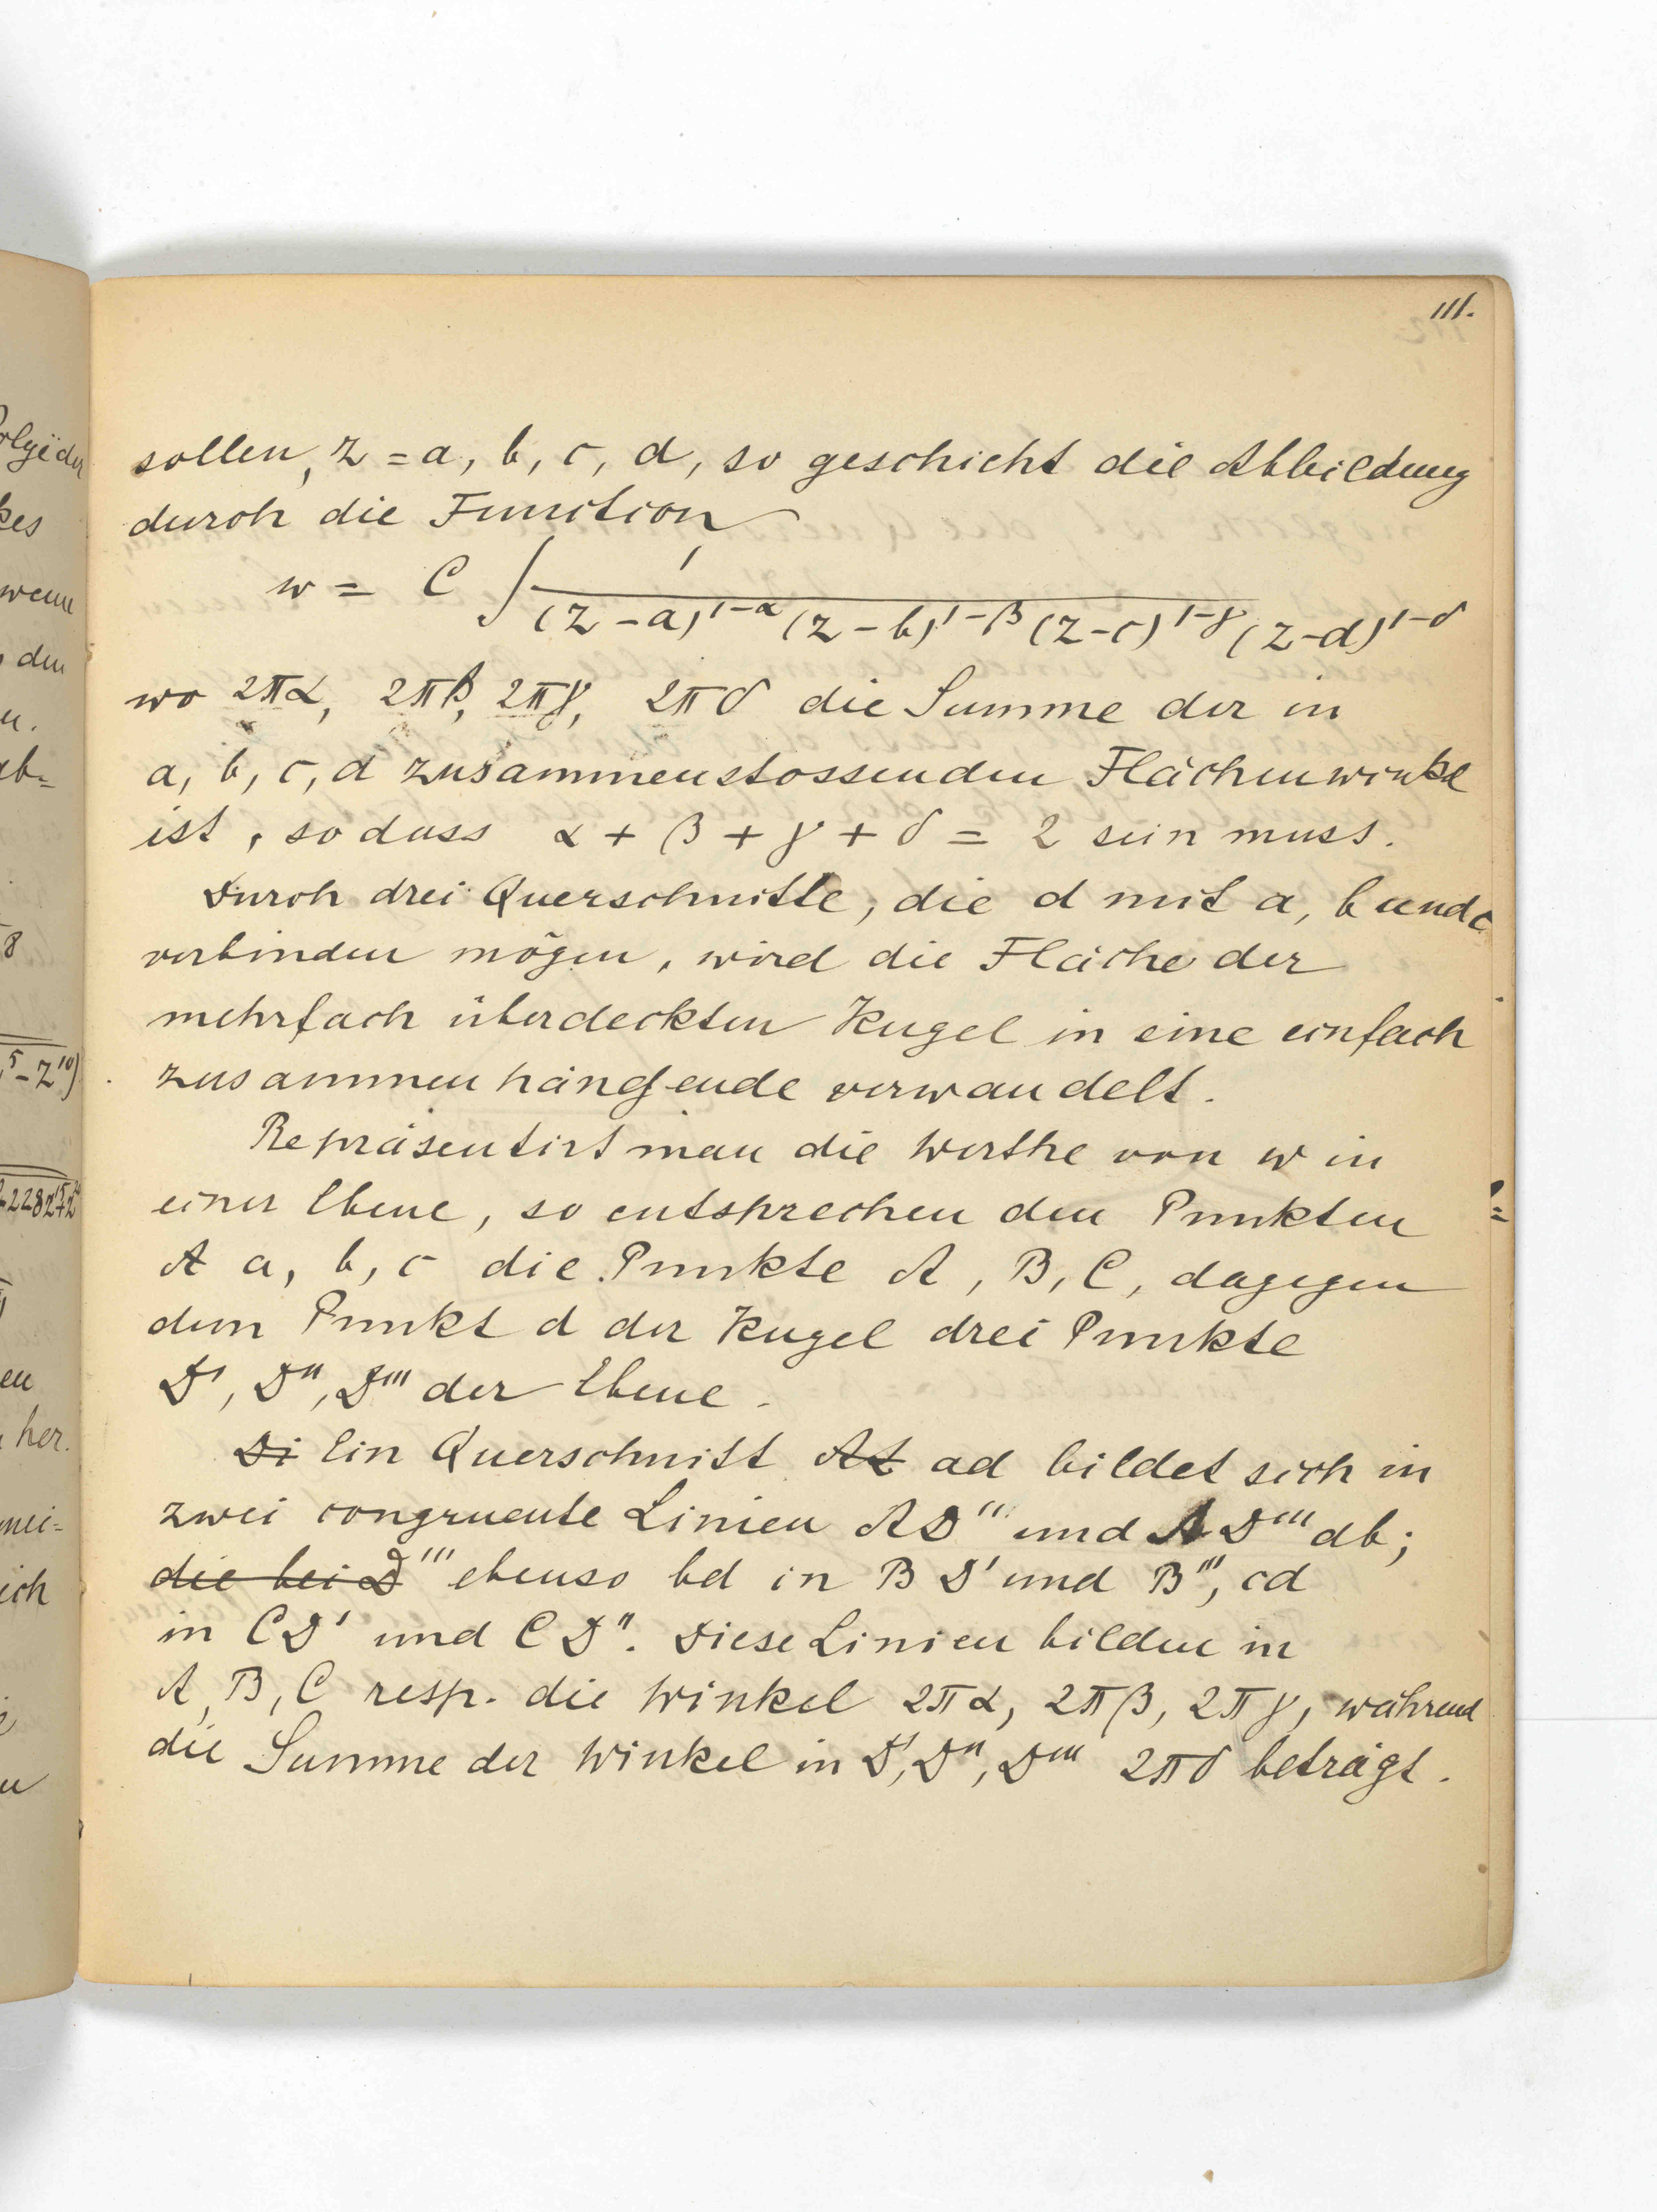 111.
sollen, z = a, b, c, d, so geschieht die Abbildung
durch die Function
w = C ∫ 1 / (z-a)^{1-α} (z-b)^{1-β} (z-c)^{1-γ} (z-d)^{1-δ}
wo 2πα, 2πβ, 2πγ, 2πδ die Summe der in
a, b, c, d zusammenstossenden Flächenwinkel
ist, so dass α + β + γ + δ = 2 sein muss.
Durch drei Querschnitte, die d mit a, b und c
verbinden mögen, wird die Fläche der
mehrfach überdeckten Kugel in eine einfach
zusammenhängende verwandelt.
Repräsentirt man die Werthe von w in
einer Ebene, so entsprechen den Punkten
A a, b, c die Punkte A, B, C, dagegen
dem Punkt d der Kugel drei Punkte
D', D'', D''' der Ebene.
Di Ein Querschnitt At ad bildet sich in
zwei congruente Linien AD'' und AD''' ab;
die bei D''' ebenso bd in B D' und B''', cd
in CD' und CD''. Diese Linien bilden in
A, B, C resp. die Winkel 2πα, 2πβ, 2πγ, während
die Summe der Winkel in D', D'', D''' 2πδ beträgt.
Polyëder
kes
wenn
den
ab=
8
5-z^{10})
228z^{15}+z
en
her.
mei=
ich